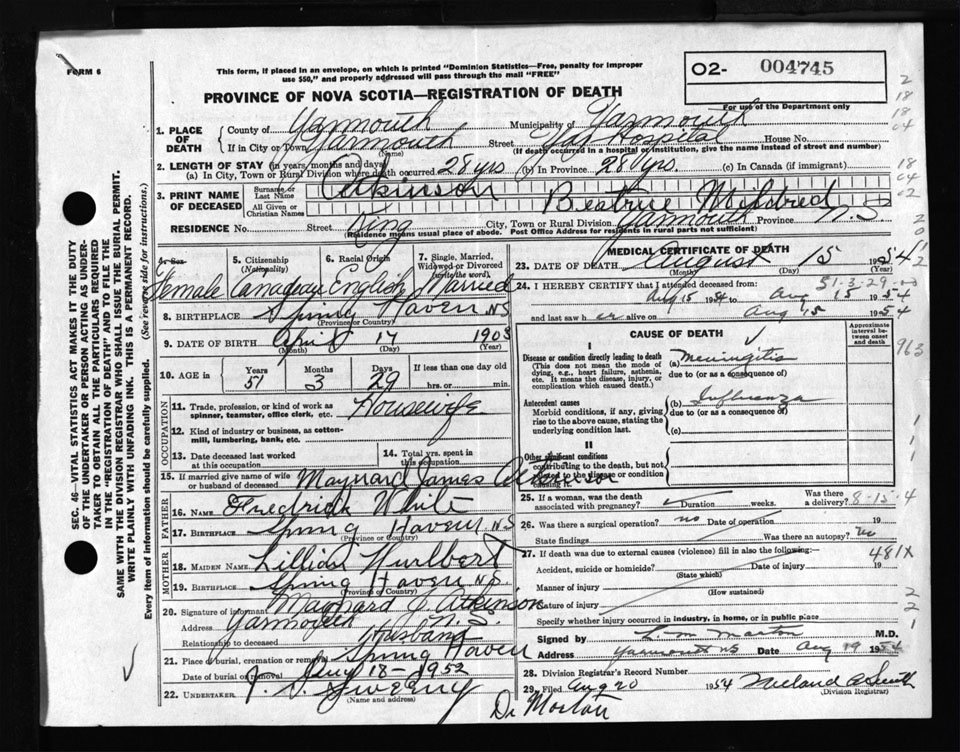 FORM 6
This form, if placed in an envelope, on which is printed "Dominion Statistics—Free, penalty for improper
use $50," and properly addressed will pass through the mail "FREE"
O2- 004745
PROVINCE OF NOVA SCOTIA—REGISTRATION OF DEATH
For use of the Department only
1. PLACE OF DEATH
County of Yarmouth Municipality of Yarmouth
If in City or Town Yarmouth Street Yar Hospital House No.
(Name) (If death occurred in a hospital or institution, give the name instead of street and number)
2. LENGTH OF STAY (in years, months and days)
(a) In City, Town or Rural Division where death occurred 28 yrs (b) In Province 28 yrs. (c) In Canada (if immigrant)
3. PRINT NAME OF DECEASED
Surname or Last Name Atkinson
All Given or Christian Names Beatrice Mildred
RESIDENCE No. Street King City, Town or Rural Division Yarmouth Province N.S.
(Residence means usual place of abode. Post Office Address for residents in rural parts not sufficient)
4. Sex Female
5. Citizenship (Nationality) Canadian
6. Racial Origin English
7. Single, Married, Widowed or Divorced (write the word) Married
8. BIRTHPLACE Spring Haven NS
(Province or Country)
9. DATE OF BIRTH April 17 1903
(Month) (Day) (Year)
10. AGE in Years Months Days If less than one day old
51 3 29 hrs. or min.
11. Trade, profession, or kind of work as spinner, teamster, office clerk, etc. Housewife
12. Kind of industry or business, as cotton-mill, lumbering, bank, etc.
13. Date deceased last worked at this occupation
14. Total yrs. spent in this occupation
15. If married give name of wife or husband of deceased Maynard James Atkinson
FATHER
16. NAME Fredrick White
17. BIRTHPLACE Spring Haven NS
(Province or Country)
MOTHER
18. MAIDEN NAME Lillian Hurlbert
19. BIRTHPLACE Spring Haven N.S.
(Province of Country)
20. Signature of informant Maynard J. Atkinson
Address Yarmouth N.S.
Relationship to deceased Husband
21. Place of burial, cremation or removal Spring Haven
Date of burial or removal 18—1952
22. UNDERTAKER J. Sweeny
(Name and address)
MEDICAL CERTIFICATE OF DEATH
23. DATE OF DEATH August 15 1954
(Month) (Day) (Year)
51-3-29
24. I HEREBY CERTIFY that I attended deceased from:
Aug 15 1954 to Aug 15 1954
and last saw her alive on Aug 15 1954
CAUSE OF DEATH
Approximate interval between onset and death
I
Disease or condition directly leading to death
(This does not mean the mode of dying, e.g., heart failure, asthenia, etc. It means the disease, injury, or complication which caused death.)
(a) Meningitis
due to (or as a consequence of)
Antecedent causes
Morbid conditions, if any, giving rise to the above cause, stating the underlying condition last.
(b) Influenza
due to (or as a consequence of)
(c)
II
Other significant conditions
contributing to the death, but not related to the disease or condition causing it.
25. If a woman, was the death associated with pregnancy? Duration weeks. Was there a delivery? 8-15-4
26. Was there a surgical operation? no Date of operation 19
State findings Was there an autopsy? No
27. If death was due to external causes (violence) fill in also the following:— 481X
Accident, suicide or homicide? Date of injury 19
(State which)
Manner of injury
(How sustained)
Nature of injury
Specify whether injury occurred in industry, in home, or in public place
Signed by L. M. Morton M.D.
Address Yarmouth NS Date Aug 19 1954
28. Division Registrar's Record Number
29. Filed Aug 20 1954
(Division Registrar)
Dr Morton
SEC. 46—VITAL STATISTICS ACT MAKES IT THE DUTY
OF THE UNDERTAKER OR PERSON ACTING AS UNDER-
TAKER TO OBTAIN ALL THE PARTICULARS REQUIRED
IN THE "REGISTRATION OF DEATH" AND TO FILE THE
SAME WITH THE DIVISION REGISTRAR WHO SHALL ISSUE THE BURIAL PERMIT.
WRITE PLAINLY WITH UNFADING INK. THIS IS A PERMANENT RECORD.
Every item of information should be carefully supplied. (See reverse side for instructions.)
OCCUPATION
2
18
18
04
18
04
02
963
1
1
1
2
2
1